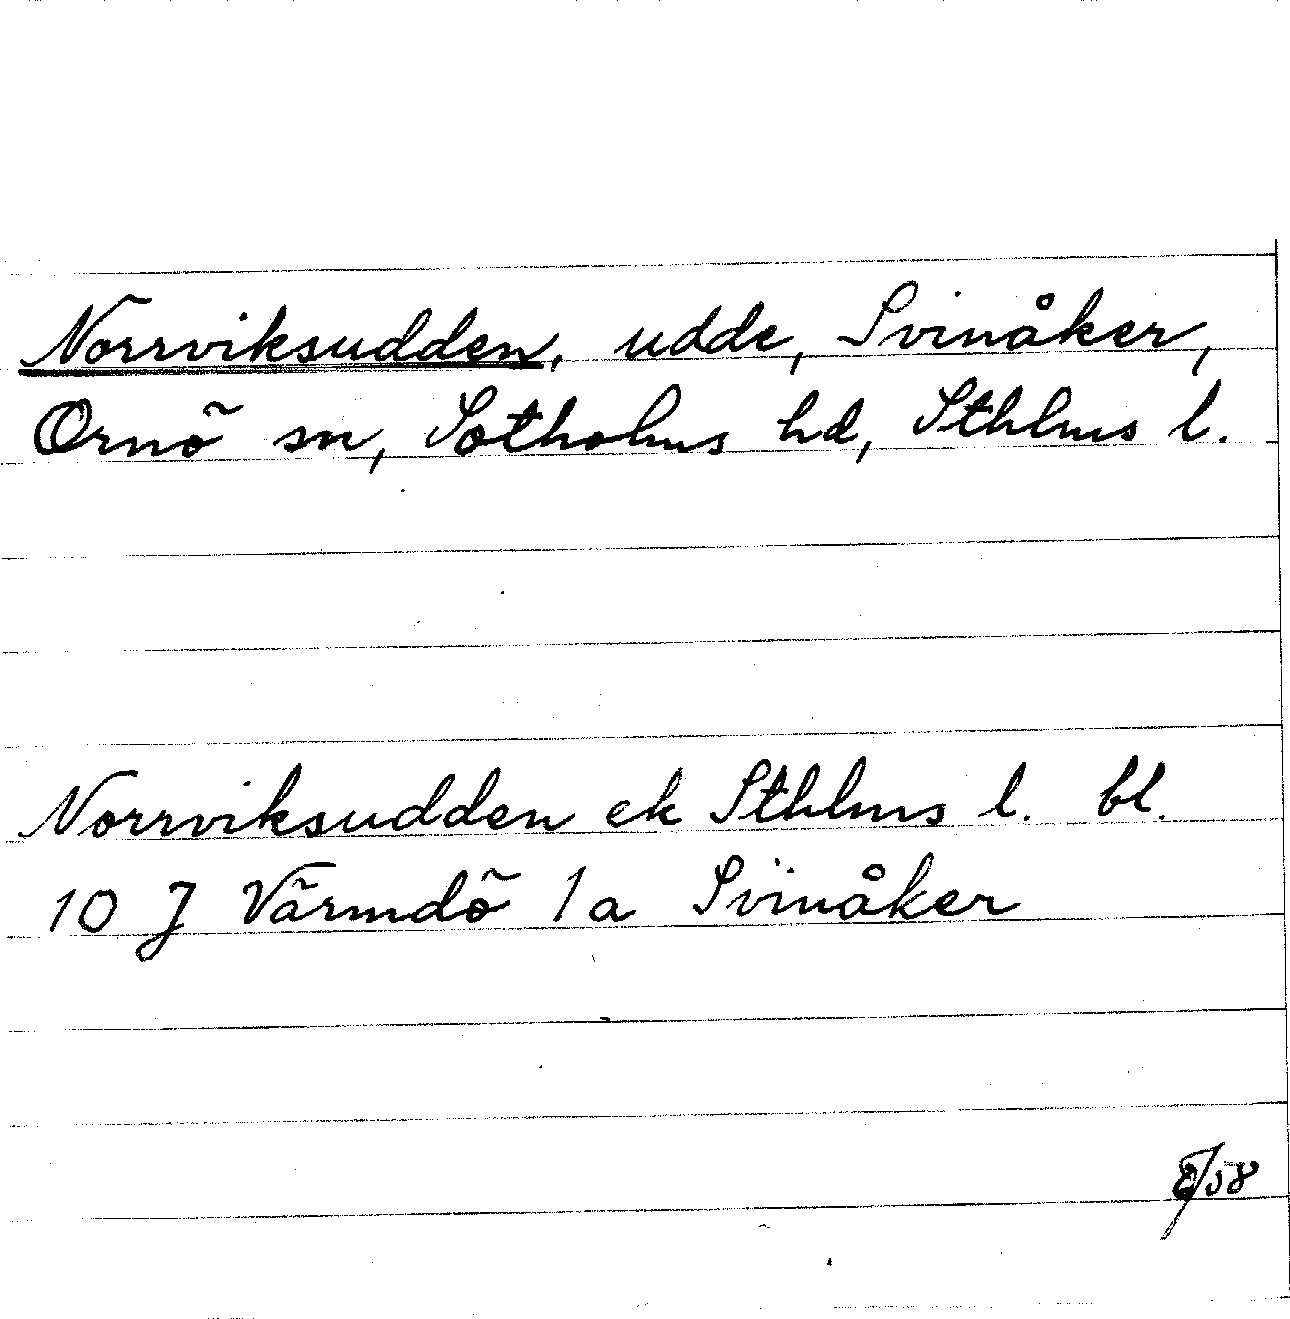 Norrviksudden, udde, Svinåker,
Ornö sn, Sotholms hd, Sthlms l.
Norrviksudden ek Sthlms l. bl.
10 J Värmdö 1a Svinåker
/58